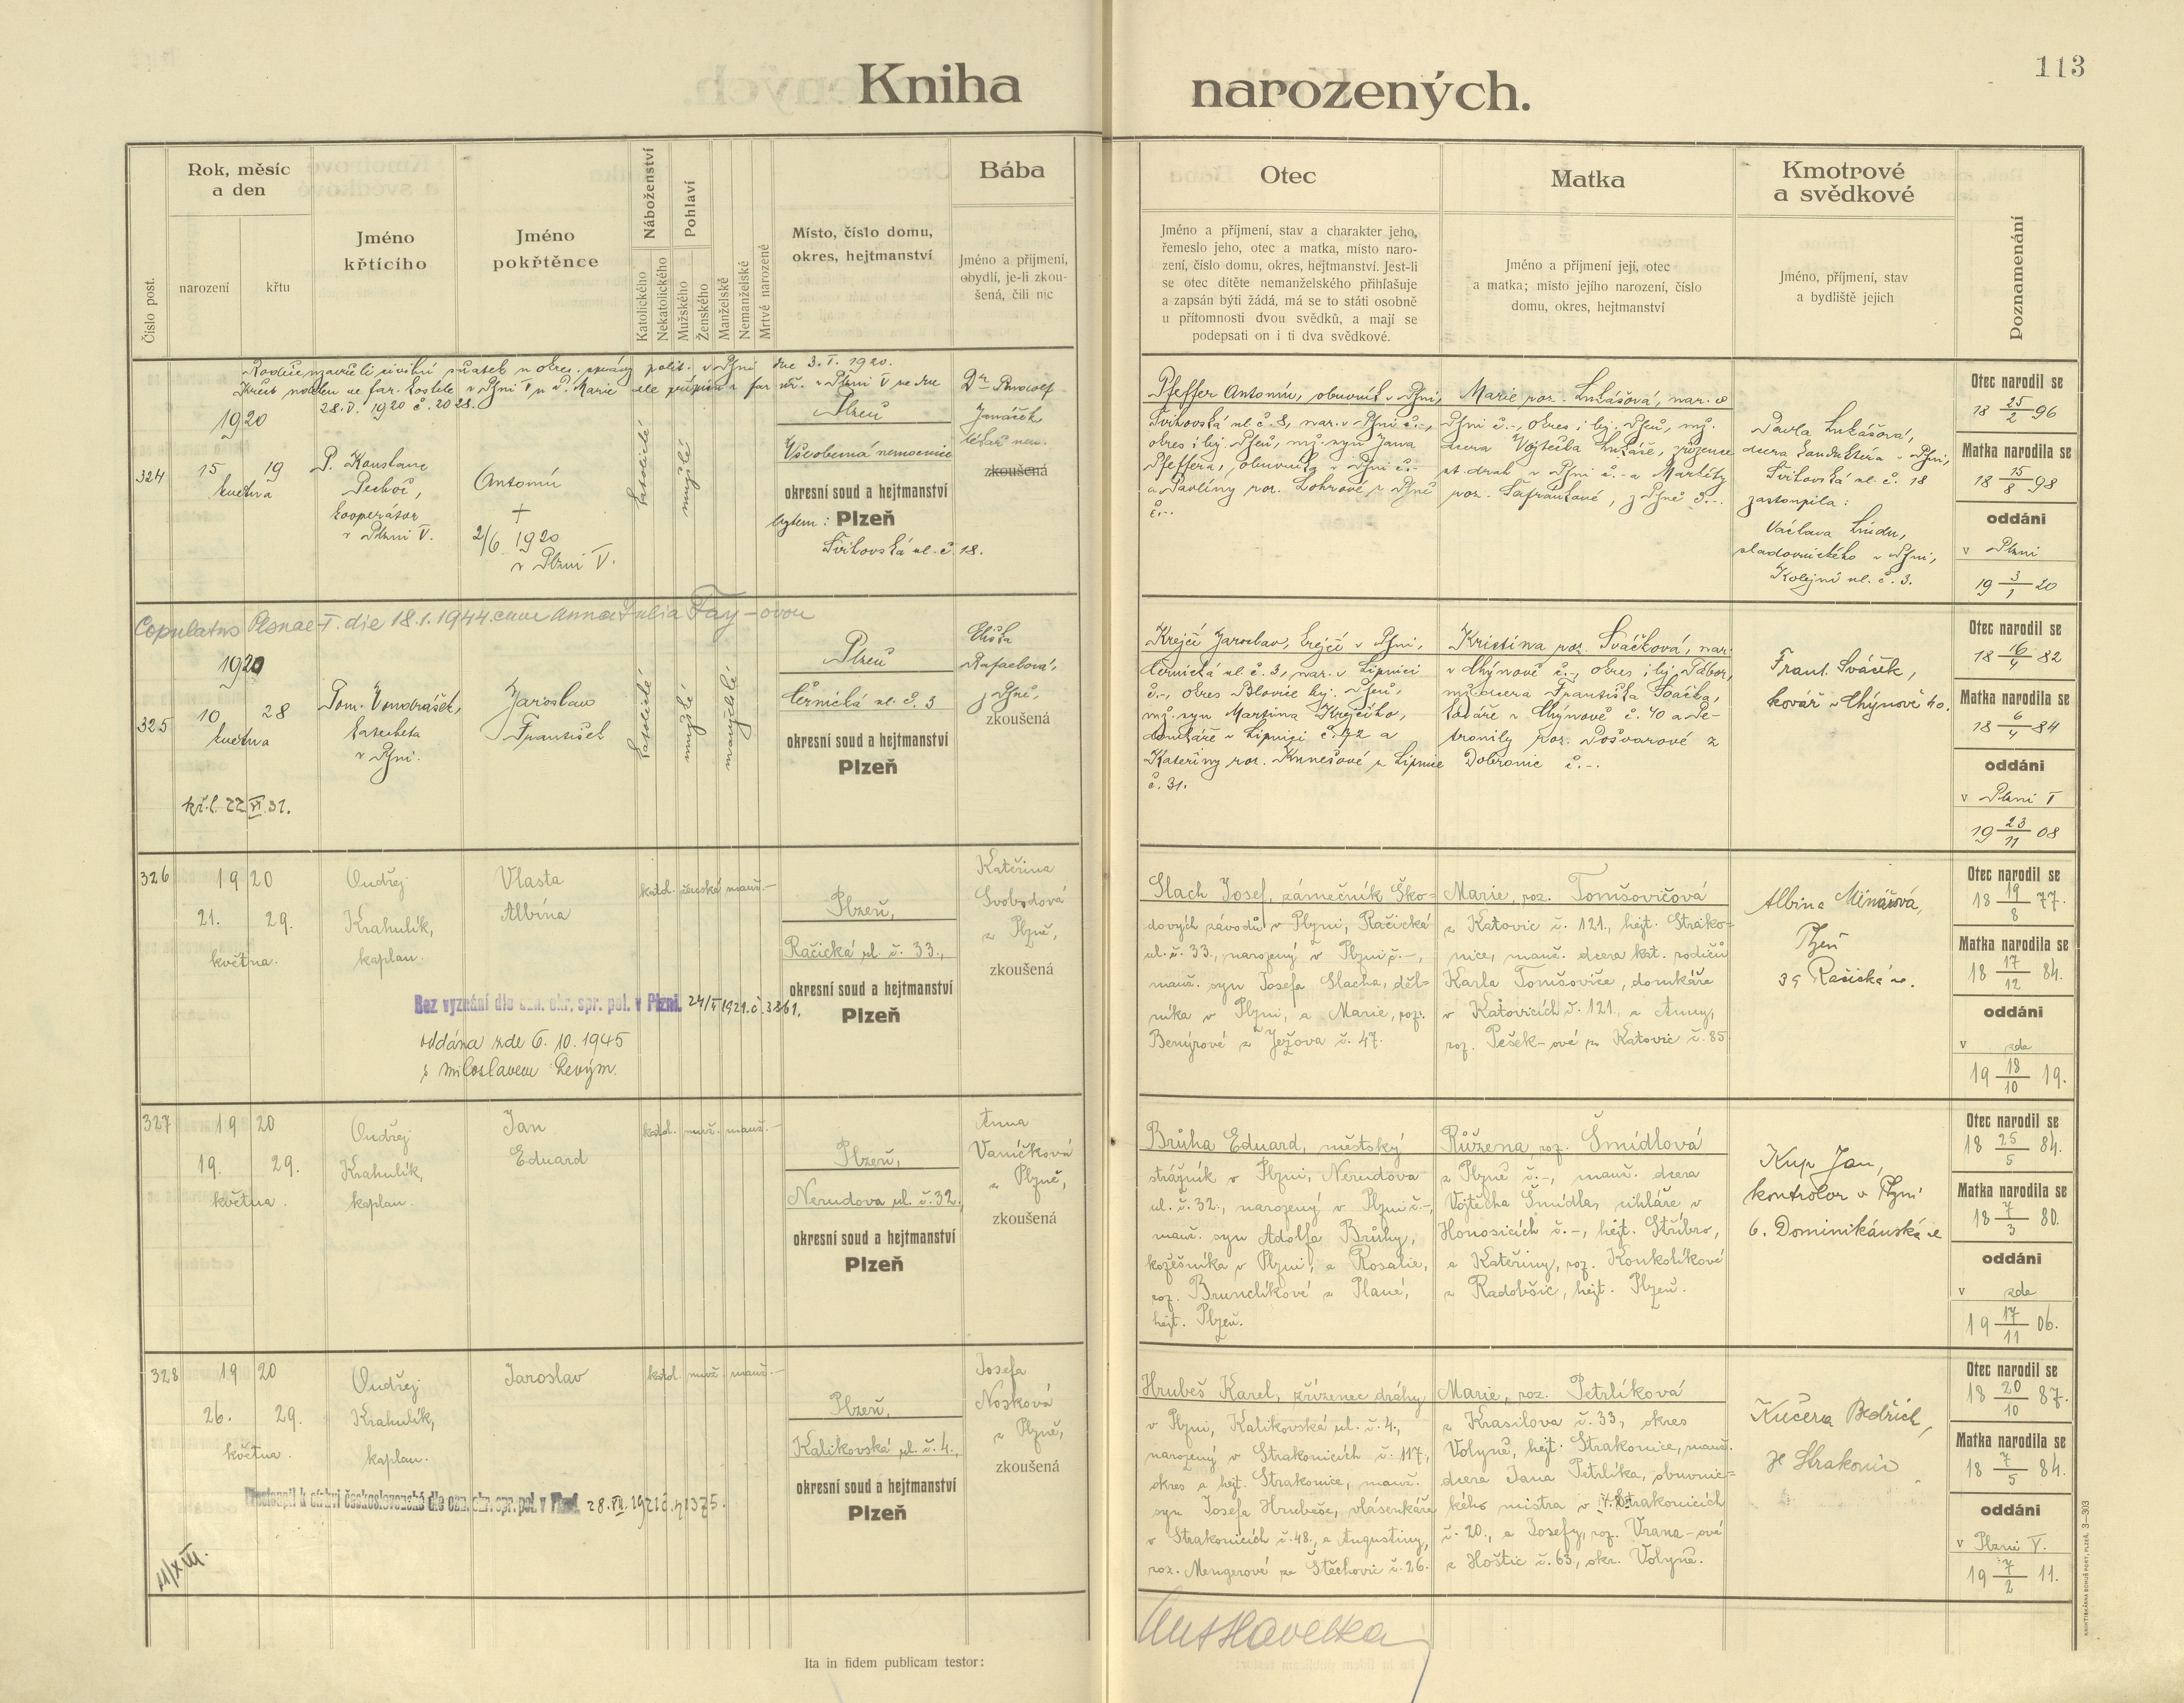 113
Kniha narozených.
Číslo post.
Rok, měsíc
a den
narození
křtu
Jméno
křtícího
Jméno
pokřtěnce
Náboženství
Katolického
Nekatolického
Pohlaví
Mužského
Ženského
Manželské
Nemanželské
Mrtvě narozené
Místo, číslo domu,
okres, hejtmanství
Bába
Jméno a příjmení,
obydlí, je-li zkou-
šená, čili nic
Otec
Jméno a příjmení, stav a charakter jeho,
řemeslo jeho, otec a matka, místo naro-
zení, číslo domu, okres, hejtmanství. Jest-li
se otec dítěte nemanželského přihlašuje
a zapsán býti žádá, má se to státi osobně
u přítomnosti dvou svědků, a mají se
podepsati on i ti dva svědkové.
Matka
Jméno a příjmení její, otec
a matka; místo jejího narození, číslo
domu, okres, hejtmanství
Kmotrové
a svědkové
Jméno, příjmení, stav
a bydliště jejich
Poznamenání
Rodiče uzavřeli civilní sňatek u okres. správy polit. v Plzni dne 3. I. 1920.
28. V. 1920 č. 2028.
324
1920
15 19
května
P. Konstanc
Pechoč,
kooperátor
v Plzni V.
Antonín
+
2/6 1920
v Plzni V.
katolické
mužské
Plzeň
Všeobecná nemocnice
okresní soud a hejtmanství
bytem: Plzeň
Švihovská ul. č. 18.
Dr. Rudolf
lékař nem.
zkoušená
Pfeffer Antonín, obuvník v Plzni,
Švihovská ul. č. 8, nar. v Plzni č.-,
okres i hej. Plzeň, mž. syn Jana
Pfeffera, obuvníka v Plzni č.-
a Pavlíny roz. Lohrové z Plzně
č.-.
Marie roz. Lukášová, nar. v
Plzni č.-, okres i hej. Plzeň, mž.
dcera Vojtěcha Lukáše, zřízence
st. drah v Plzni č.- a Markéty
roz. Šafránkové, z Plzně č.-.
Pavla Lukášová,
dcera konduktéra v Plzni,
Švihovská ul. č. 18
zastoupila:
Václava Lindu,
sladovnického v Plzni,
Kolejní ul. č. 3.
Otec narodil se
18 25/2 96
Matka narodila se
18 15/8 98
oddáni
v Plzni
19 3/1 20
Copulatus Plsnae I. die 18.1.1944 cum Anna Julia Fay-ovou
325
1920
10 28
května
kř. l. 22 VI. 31.
Tom. Vondrášek,
katecheta
v Plzni.
Jaroslav
František
katolické
mužské
manželské
Plzeň
Černická ul. č. 3
okresní soud a hejtmanství
Plzeň
Eliška
Rafaelová,
z Plzně,
zkoušená
Krejčí Jaroslav, krejčí v Plzni,
Černická ul. č. 3, nar. v Lipnici
č.-, okres Blovice hej. Plzeň,
mž. syn Martina Krejčího,
domkáře v Lipnici č. 72 a
Kateřiny roz. Kunešové z Lipnice
č. 31.
Kristina roz. Sváčková, nar.
v Chýnově č.-, okres i hej. Tábor,
mž. dcera Františka Sváčka,
kováře v Chýnově č. 40 a Pe-
tronily roz. Pošvarové z
Dobronic č.-.
Frant. Sváček,
kovář v Chýnově 40.
Otec narodil se
18 16/4 82
Matka narodila se
18 6/4 84
oddáni
v Plzni I
19 23/11 08
326
1920
21. 29.
května.
Ondřej
Krahulík,
kaplan.
Vlasta
Albína
katol. ženské manž. —
Plzeň,
Račická ul. č. 33.,
okresní soud a hejtmanství
Plzeň
Kateřina
Svobodová
z Plzně,
zkoušená
Bez vyznání dle ozn. okr. spr. pol. v Plzni. 24/I 1921. č. 3361.
oddána zde 6. 10. 1945
s Miloslavem Levým.
Slach Josef, zámečník Ško-
dových závodů v Plzni, Račická
ul. č. 33., narozený v Plzni č.-,
manž. syn Josefa Slacha, děl-
níka v Plzni, a Marie, roz.
Benýrové z Ježova č. 47.
Marie, roz. Tomšovičová
z Katovic č. 121., hejt. Strako-
nice, manž. dcera kat. rodičů
Karla Tomšoviče, domkáře
v Katovicích č. 121., a Anny,
roz. Pešek-ové ze Katovic č. 85.
Albina Mlnářová,
Plzeň
39 Račická ul.
Otec narodil se
18 19/8 77.
Matka narodila se
18 17/12 84.
oddáni
v zde
19 18/10 19.
327
1920
19. 29.
května.
Ondřej
Krahulík,
kaplan.
Jan
Eduard
katol. muž. manž. —
Plzeň,
Nerudova ul. č. 32.,
okresní soud a hejtmanství
Plzeň
Anna
Vaníčková
z Plzně,
zkoušená
Brůha Eduard, městský
strážník v Plzni, Nerudova
ul. č. 32., narozený v Plzni č.-,
manž. syn Adolfa Brůhy,
kožešníka v Plzni, a Rosalie,
roz. Brunclíkové z Plané,
hejt. Plzeň.
Růžena, roz. Šmídlová
z Plzně č.-, manž. dcera
Vojtěcha Šmídla, cihláře v
Honosicích č.-, hejt. Stříbro,
a Kateřiny, roz. Konkolíkové
z Radobšic, hejt. Plzeň.
Kup Jan,
kontrolor v Plzni
6. Dominikánská ul
Otec narodil se
18 25/5 84.
Matka narodila se
18 7/3 80.
oddáni
v zde
19 17/11 06.
328
1920
26. 29.
května.
Ondřej
Krahulík,
kaplan.
Jaroslav
katol. muž. manž. —
Plzeň,
Kalikovská ul. č. 4.,
okresní soud a hejtmanství
Plzeň
Josefa
Nosková
z Plzně,
zkoušená
Přestoupil k církvi československé dle ozn. okr. spr. pol. v Plzni.
11/XIII.
Hrubeš Karel, zřízenec dráhy
v Plzni, Kalikovská ul. č. 4.,
narozený v Strakonicích č. 117,
okres a hejt. Strakonice, manž.
syn Josefa Hrubeše, vlásenkáře
v Strakonicích č. 48., a Augustiny,
roz. Mengerové ze Štěchovic č. 26.
Marie, roz. Petrlíková
z Krasilova č. 33, okres
Volyně, hejt. Strakonice, manž.
dcera Jana Petrlíka, obuvnic-
kého mistra v Strakonicích
č. 20., a Josefy, roz. Vrana-ové
z Hoštic č. 63., okr. Volyně.
Kučera Bedřich,
ze Strakonic
Otec narodil se
18 20/10 87.
Matka narodila se
18 7/5 84.
oddáni
v Plzni V.
19 7/2 11.
Ita in fidem publicam testor:
KNIHTISKÁRNA BOHUŠ PORT, PLZEŇ. 3—303